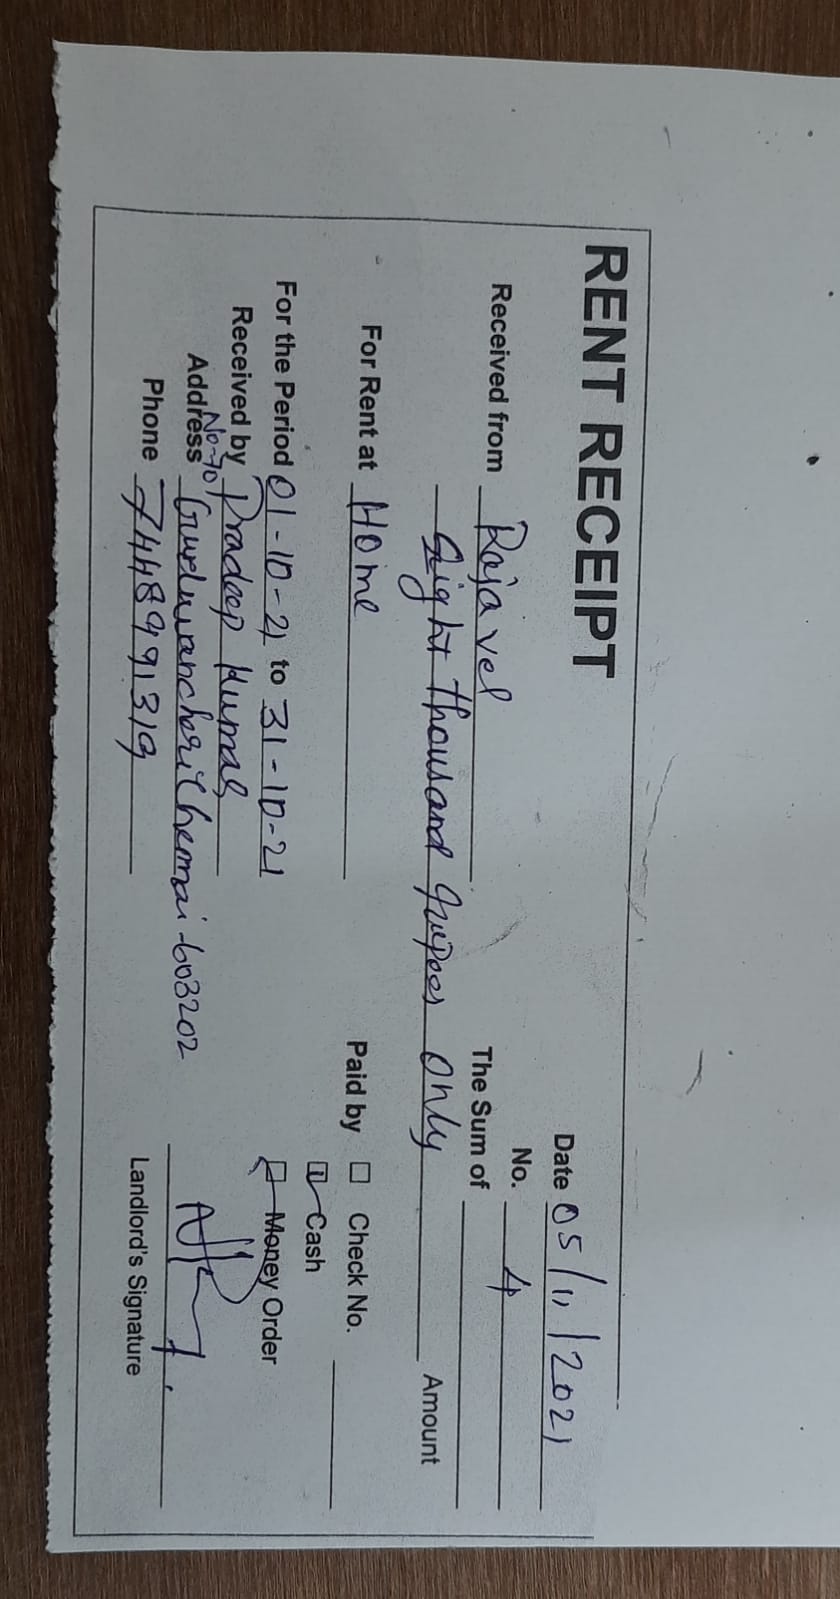 RENT RECEIPT
Date 05/11/2021
No. 4
Received from Rajavel The Sum of
Eight thousand rupees only Amount
For Rent at Home
Paid by Check No.
Cash
Money Order
For the Period 01-10-21 to 31-10-21
Received by Pradeep Kumar
Address No-70, Guduvancheri Chennai-603202
Phone 7448991319
Landlord's Signature